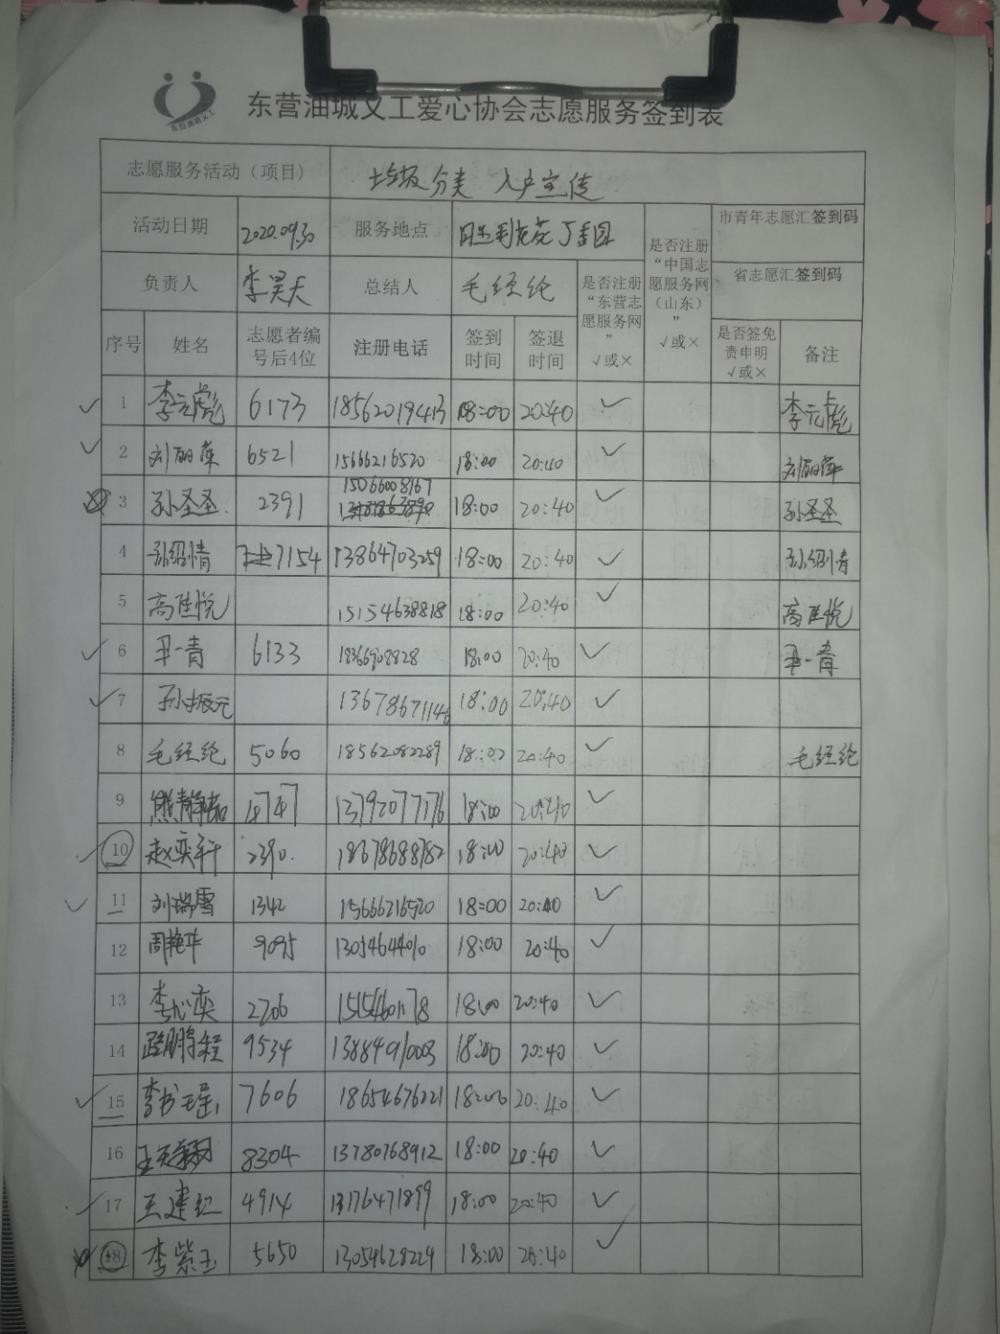 东营油城义工爱心协会志愿服务签到表
志愿服务活动（项目） 垃圾分类 入户宣传
活动日期 2020.09.30 服务地点 是否注册“中国志愿服务网（山东）”√或× 市青年志愿汇签到码
负责人 李昊天 总结人 毛经纶 是否注册“东营志愿服务网”√或× 省志愿汇签到码
序号 姓名 志愿者编号后4位 注册电话 签到时间 签退时间 是否签免责申明√或× 备注
1 李元彪 6173 18562019413 18:00 20:40 √ 李元彪
2 刘丽萍 6521 15666216520 18:00 20:40 √ 刘丽萍
3 孙圣圣 2391 15066008167 18:00 20:40 √ 孙圣圣
4 孙绍情 7154 13864703259 18:00 20:40 √ 孙绍情
5 高佳悦 15154638818 18:00 20:40 √ 高佳悦
6 一青 6133 18366908828 18:00 20:40 √ 一青
7 孙振元 13678671146 18:00 20:40 √
8 毛经纶 5060 18562082289 18:00 20:40 √ 毛经纶
9 4747 13792077176 18:00 20:40 √
10 赵奕轩 2390 18678688782 18:00 20:40 √
11 刘瑞雪 1342 15666216520 18:00 20:40 √
12 周艳华 9095 13054644010 18:00 20:40 √
13 李心奕 2706 18:00 20:40 √
14 路鹏程 9534 13884910003 18:00 20:40 √
15 李书瑶 7606 18654676221 18:00 20:40 √
16 8304 13780768912 18:00 20:40 √
17 王建红 4914 13176471899 18:00 20:40 √
18 李紫玉 5650 13054628224 18:00 20:40 √